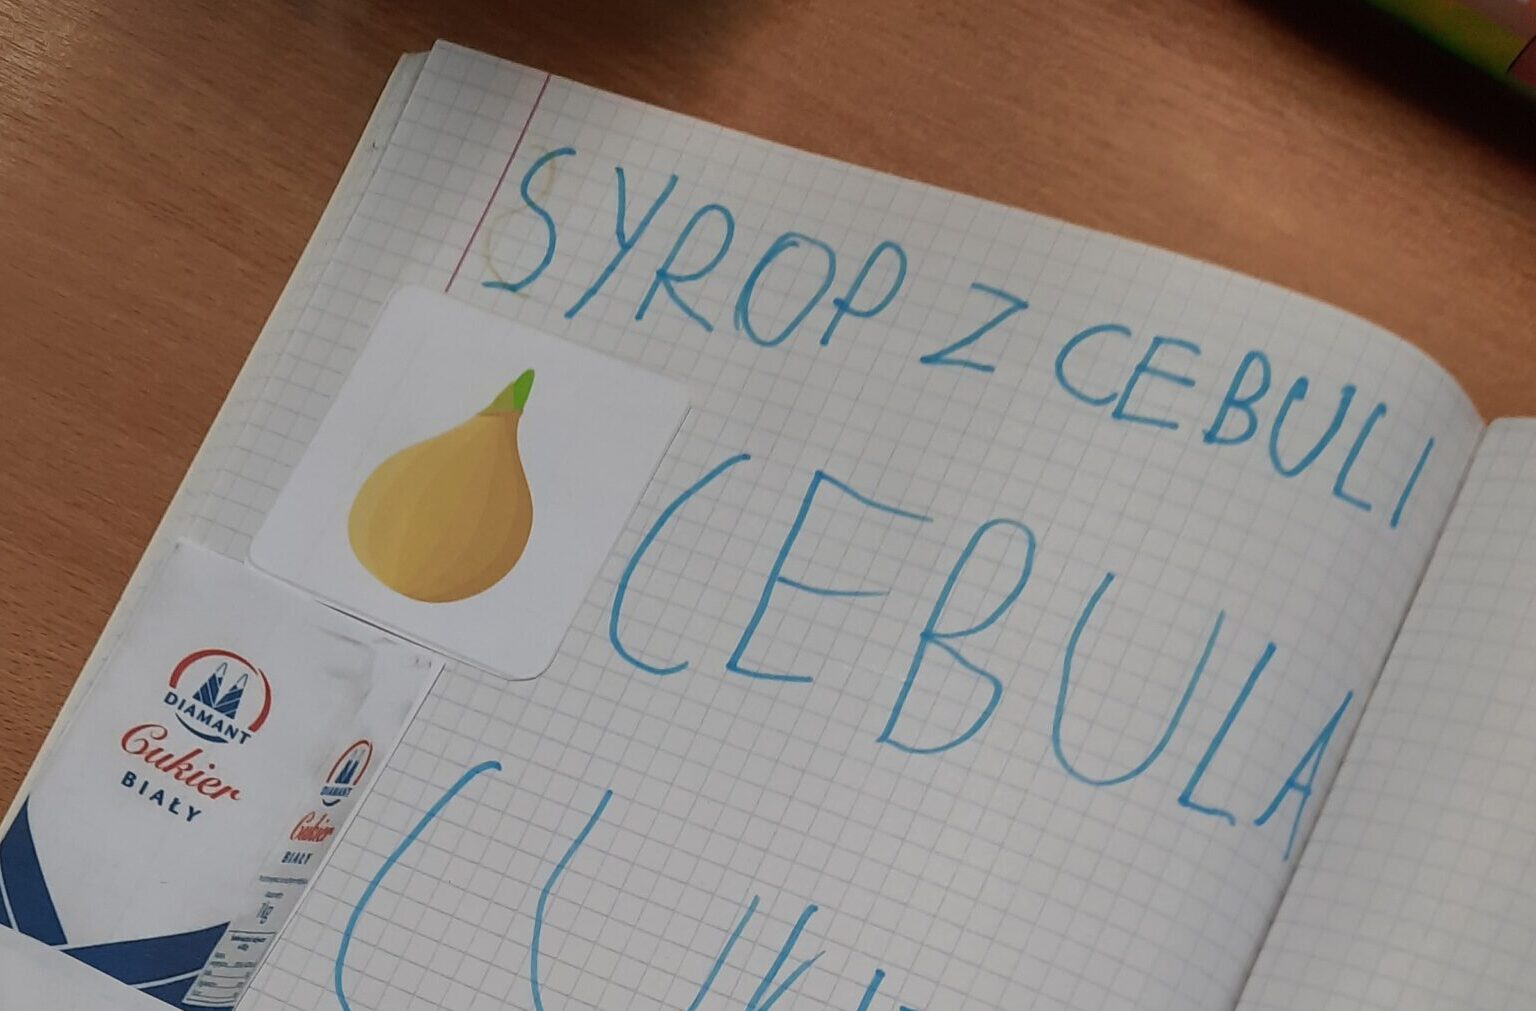 SYROP Z CEBULI
CEBULA
DIAMANT
Cukier
BIAŁY
DIAMANT
Cukier
BIAŁY
1kg